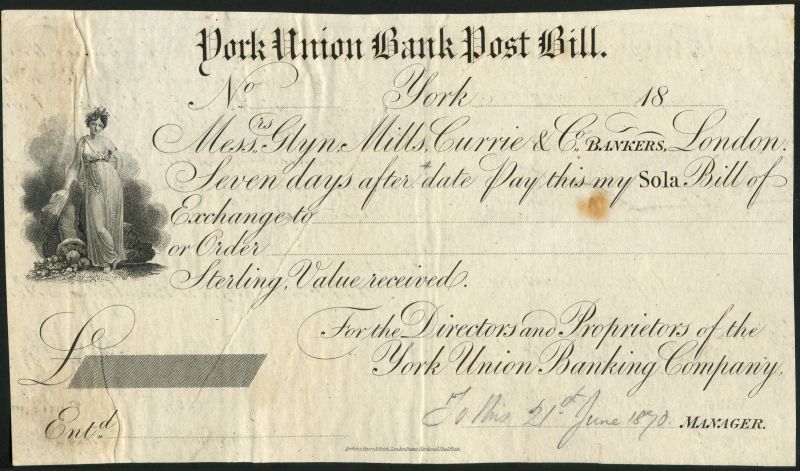 York Union Bank Post Bill.
No York 18
Messrs. Glyn, Mills, Currie & Co., BANKERS, London.
Seven days after date Pay this my Sola Bill of
Exchange to
or Order
Sterling, Value received.
£ For the Directors and Proprietors of the
York Union Banking Company,
21st June 1870 MANAGER.
Entd.